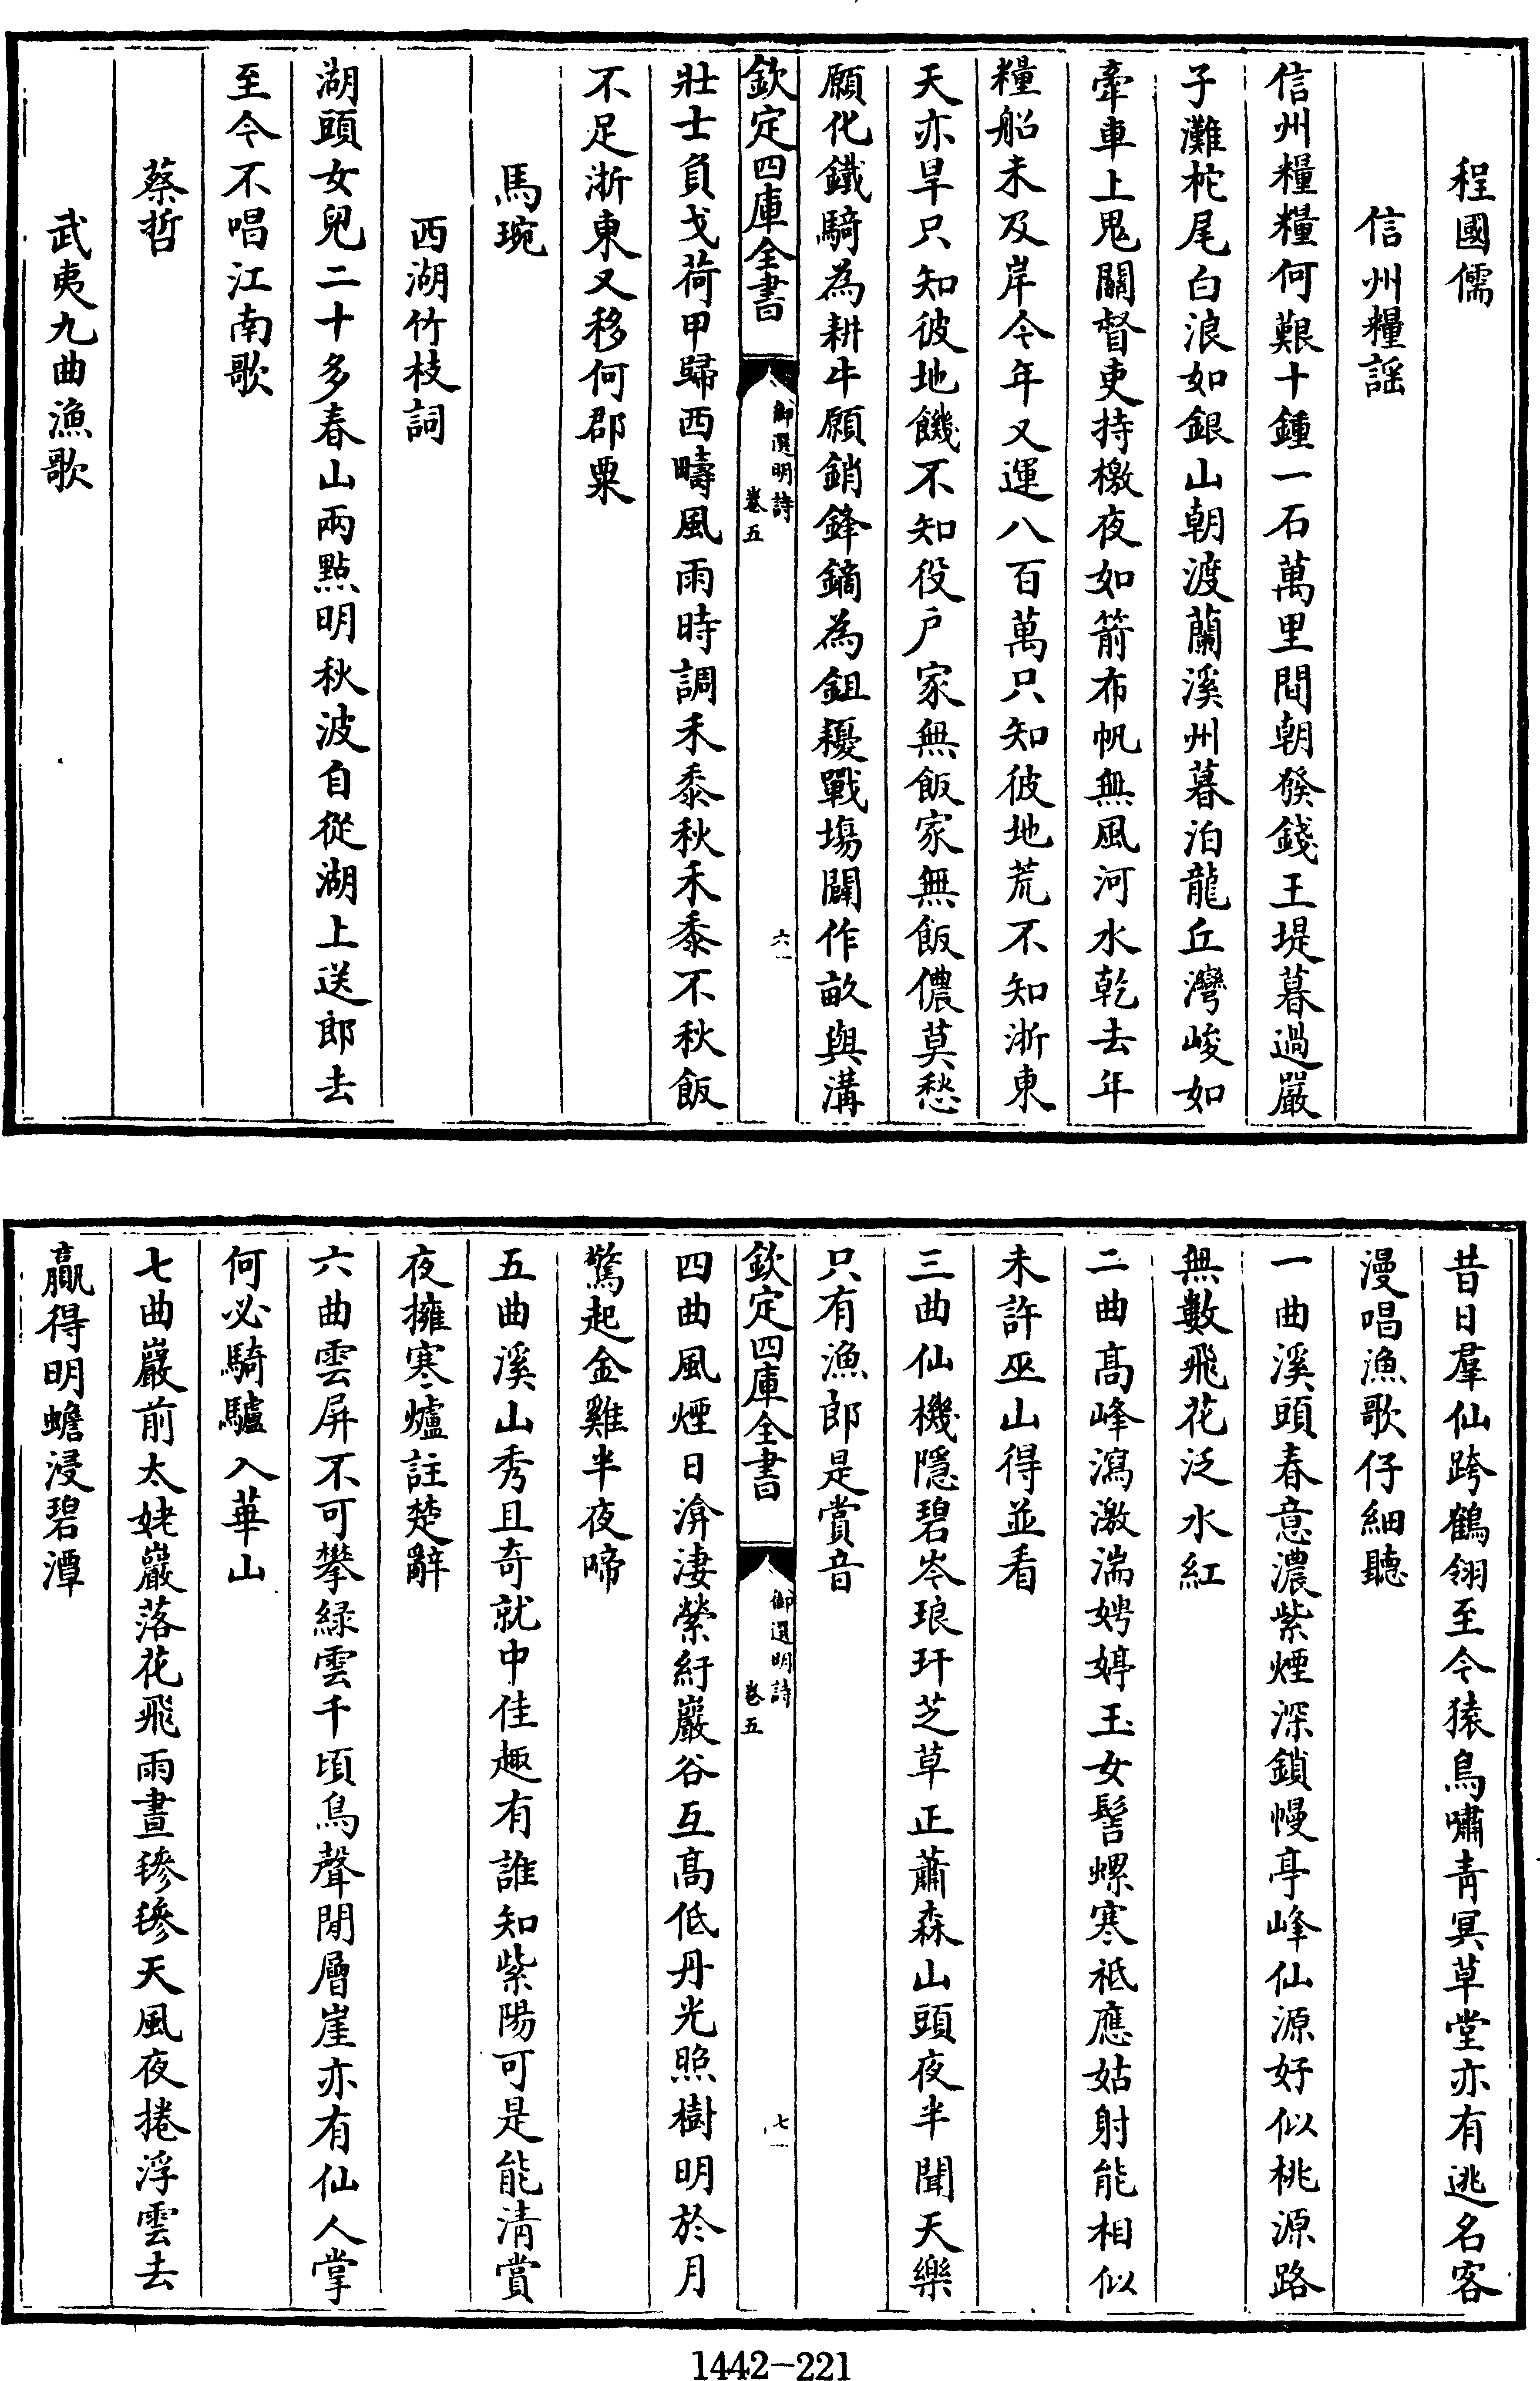 程國儒
信州糧謡
信州糧糧何艱十鍾一石萬里間朝發錢王堤暮過嚴
子灘柁尾白浪如銀山朝渡蘭溪州暮泊龍丘灣峻如
牽車上鬼關督吏持檄夜如箭布帆無風河水乾去年
糧船未及岸今年又運八百萬只知彼地荒不知浙東
天亦旱只知彼地饑不知役户家無飯家無飯儂莫愁
願化鐵騎為耕牛願銷鋒鏑為鉏耰戰塲闢作畝與溝
欽定四庫全書
御選明詩
卷五
六
壯士負戈荷甲歸西疇風雨時調禾黍秋禾黍不秋飯
不足浙東又移何郡粟
馬琬
西湖竹枝詞
湖頭女兒二十多春山兩點明秋波自從湖上送郎去
至今不唱江南歌
蔡哲
武夷九曲漁歌
昔日羣仙跨鶴翎至今猿鳥嘯青冥草堂亦有逃名客
漫唱漁歌仔細聽
一曲溪頭春意濃紫煙深鎖幔亭峰仙源好似桃源路
無數飛花泛水紅
二曲高峰瀉激湍娉婷玉女髻螺寒祗應姑射能相似
未許巫山得並看
三曲仙機隱碧岑琅玕芝草正蕭森山頭夜半聞天樂
只有漁郎是賞音
欽定四庫全書
御選明詩
卷五
七
四曲風煙日渰淒縈紆巖谷互高低丹光照樹明於月
驚起金雞半夜啼
五曲溪山秀且奇就中佳趣有誰知紫陽可是能清賞
夜擁寒爐註楚辭
六曲雲屏不可攀緑雲千頃鳥聲閒層崖亦有仙人掌
何必騎驢入華山
七曲巖前太姥巖落花飛雨晝毿毿天風夜捲浮雲去
贏得明蟾浸碧潭
1442-221